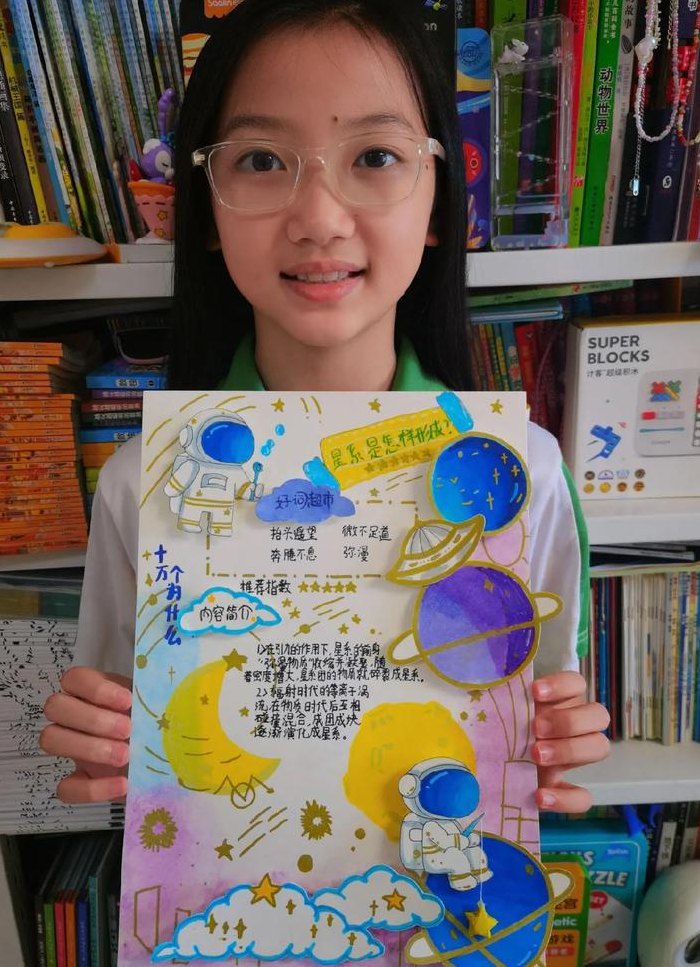 动物世界
SUPER
BLOCKS
计客®超级积木
星系是怎样形成?
好词超市
抬头遥望 微不足道
奔腾不息 弥漫
推荐指数
十万个为什么
内容简介
1)在引力的作用下,星系的前身
"弥漫物质"收缩并凝聚,随
着密度增大,星系团的物质就碎裂成星系。
2)辐射时代的等离子涡
流,在物质时代后互相
碰撞混合,成团成块
逐渐演化成星系。